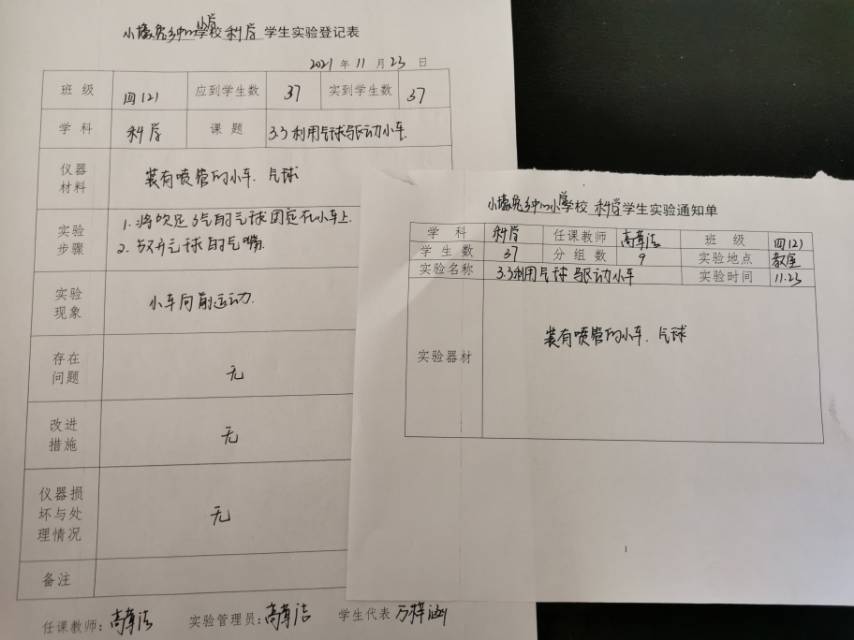 学校 科学 学生实验登记表
2021 年 11 月 23 日
班级 四(2) 应到学生数 37 实到学生数 37
学科 科学 课题 3.3利用气球驱动小车
仪器材料 装有喷管的小车、气球
实验步骤 1. 将吹足了气的气球固定在小车上.
2. 放开气球的气嘴.
实验现象 小车向前运动.
存在问题 无
改进措施 无
仪器损坏与处理情况 无
备注
任课教师: 实验管理员: 学生代表
小学校 科学学生实验通知单
学科 科学 任课教师 班级 四(2)
学生数 37 分组数 9 实验地点 教室
实验名称 3.3利用气球驱动小车 实验时间 11.23
实验器材 装有喷管的小车、气球
1